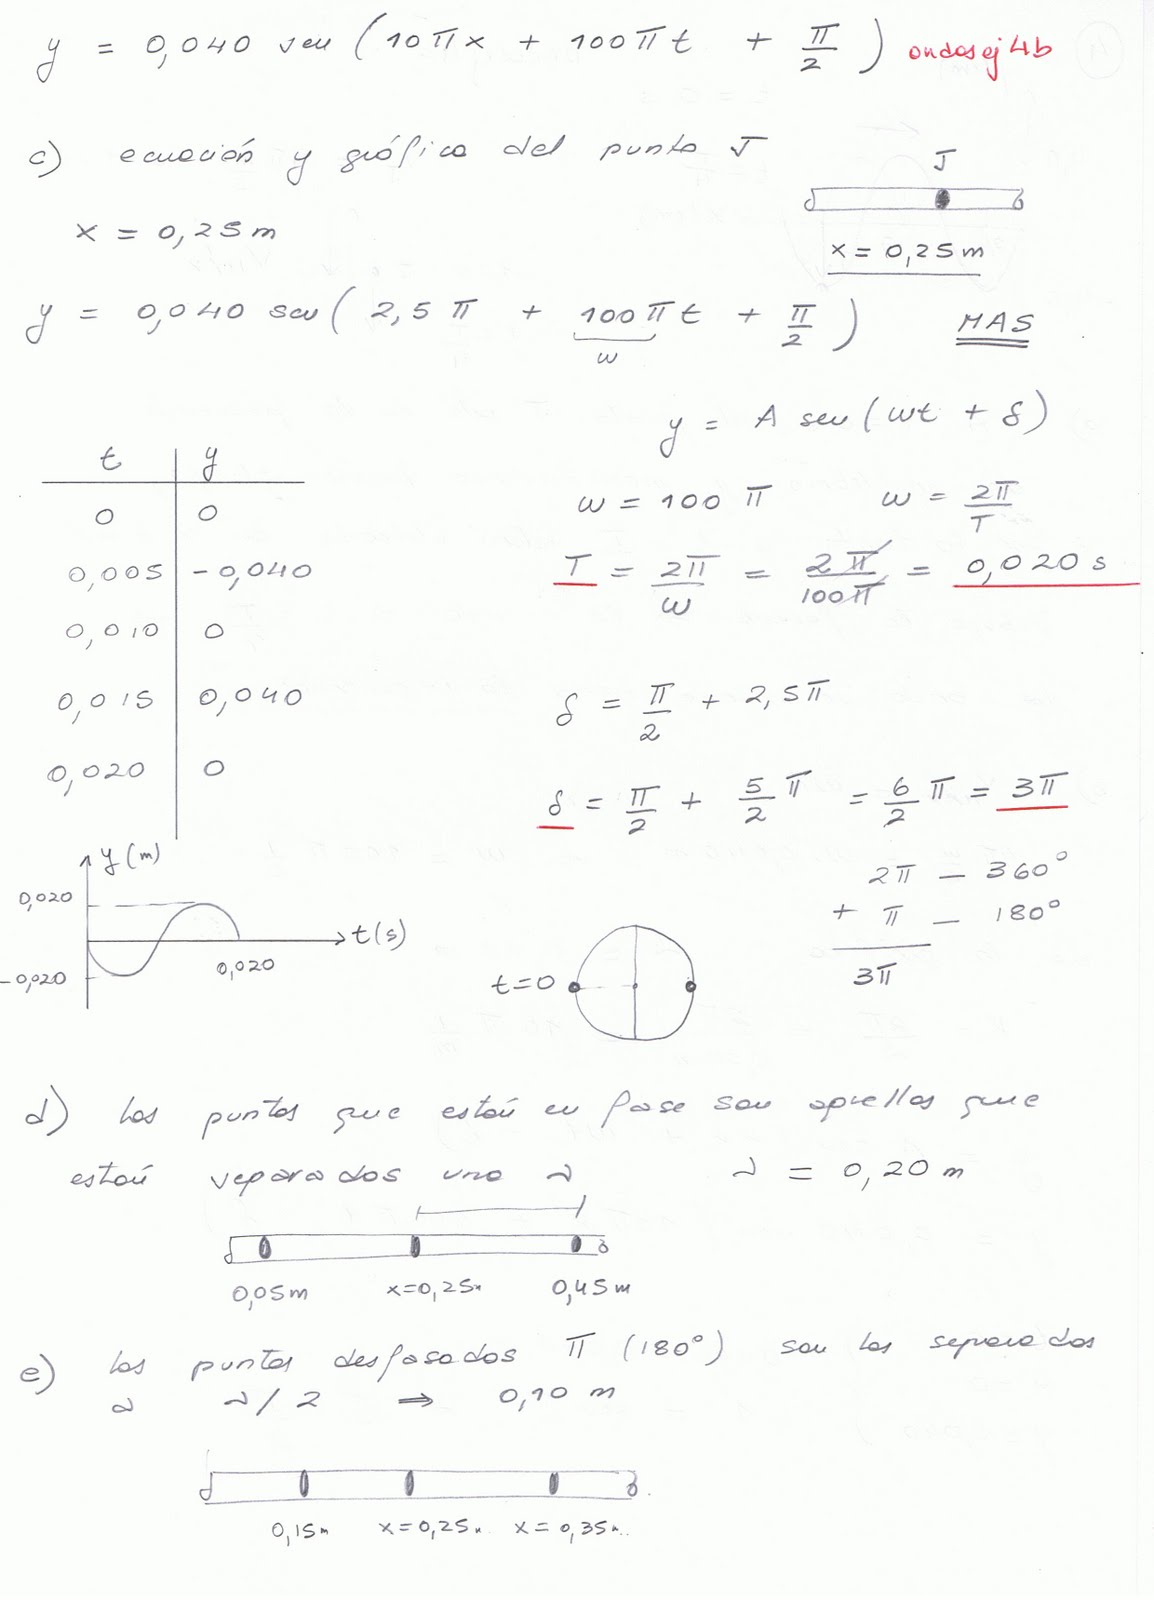 y = 0,040 sen ( 10πx + 100πt + π/2 ) ondas ej 4b
c) ecuación y gráfica del punto J
J
x = 0,25 m
x = 0,25 m
y = 0,040 sen ( 2,5 π + 100πt + π/2 ) MAS
ω
y = A sen ( ωt + δ )
t y
0 0
0,005 -0,040
0,010 0
0,015 0,040
0,020 0
ω = 100 π ω = 2π/T
T = 2π/ω = 2π/100π = 0,020 s
δ = π/2 + 2,5π
δ = π/2 + 5/2 π = 6/2 π = 3π
2π — 360°
+ π — 180°
3π
y (m)
0,020
t (s)
0,020
-0,020
t=0
d) los puntos que están en fase son aquellos que
están separados una λ λ = 0,20 m
0,05m x=0,25m 0,45m
e) los puntos desfasados π (180°) son los separados
a λ/2 ⇒ 0,10 m
0,15m x=0,25m. x=0,35m.